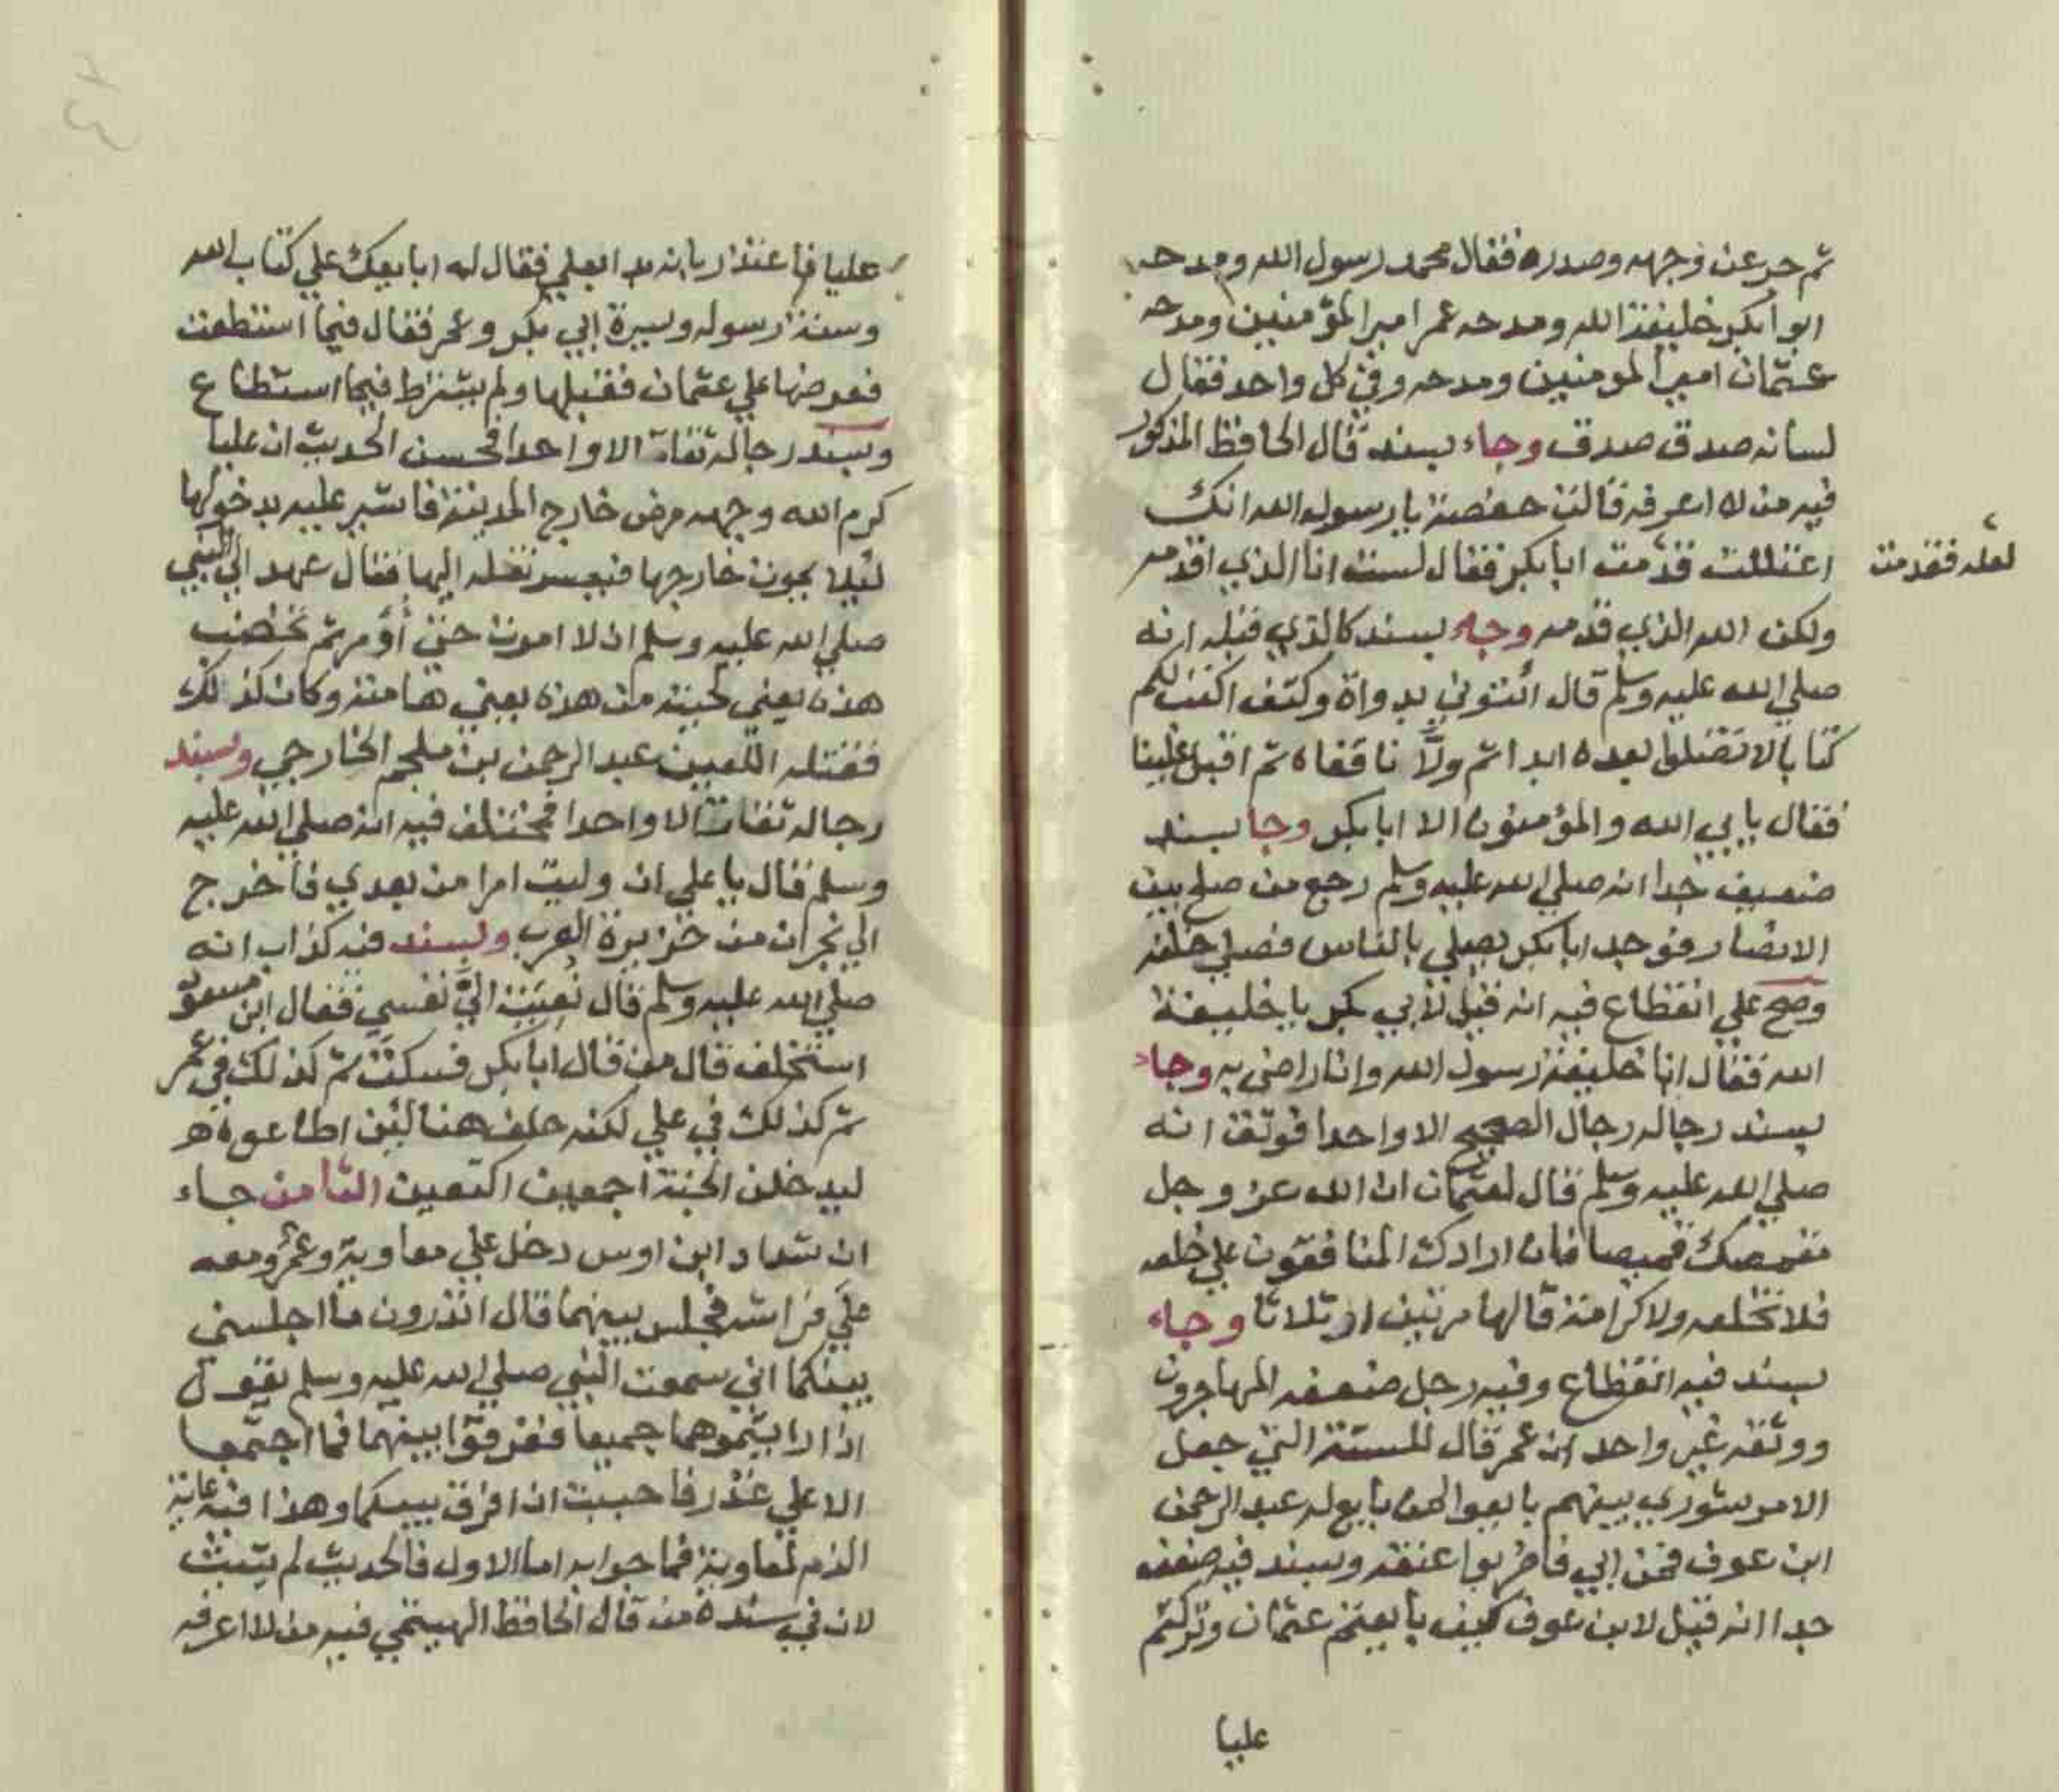 ثم حر عن وجهه وصدره فقال محمد رسول الله ومدحه
ابو أبكر خليفة الله ومدحه عمر امير المؤمنين ومدحه
عثمان امير المومنين ومدحه وفي كل واحد فقال
لسانه صدق صدق وجاء بسند قال الحافظ المذكور
فيه من لا اعرفه قالت حفصة يا رسول الله انك
اعتللت قدّمت ابا بكر فقال لست انا الذي اقدمه
لعله فقدمت
ولكن الله الذي قدمه وجاء بسند كالذي قبله انه
صلي الله عليه وسلم قال ائتوني بدواة وكتف اكتب لكم
كتابا لا تضلوا بعده ابدا ثم ولّانا قفاه ثم اقبل علينا
فقال يابي الله والمؤمنون الا ابا بكر وجا بسند
ضعيف جدا انه صلي الله عليه وسلم رجع من صلح بين
الانصار فوجد ابا بكر يصلي بالناس فصلي خلفه
وصح علي انقطاع فيه انه قيل لأبي بكر يا خليفة
الله فقال انا خليفة رسول الله وانا راضي به وجاء
بسند رجاله رجال الصحيح الا واحدا فوثق انه
صلي الله عليه وسلم قال لعثمان ان الله عز وجل
مقمصك قميصا فان ارادك المنافقون علي خلعه
فلا تخلعه ولا كرامة قالها مرتين او ثلاثا وجاء
بسند فيه انقطاع وفيه رجل ضعفه المهاجرون
ووثقه غير واحد ان عمر قال للستة التي جعل
الامر شوري بينهم بايعوا لمن بايع له عبد الرحمن
ابن عوف فمن ابي فاضربوا عنقه وبسند فيه ضعف
جدا انه قيل لابن عوف كيف بايعتم عثمان وتركتم
عليا
عليا فاعتذر بانه بدا بعلي فقال له ابايعك علي كتاب الله
وسنة رسوله وسيرة ابي بكر وعمر فقال فيما استطعت
فعرضها علي عثمان فقبلها ولم يشترط فيما استطاع
وبسند رجاله ثقات الا واحدا فحسن الحديث ان عليا
كرم الله وجهه مرض خارج المدينة فاشير عليه بدخولها
ليلا يموت خارجها فيعسر نقله اليها فقال عهد الي النبي
صلي الله عليه وسلم ان لا اموت حتي أؤمر ثم تخضب
هذه يعني لحيته من هذه يعني هامته وكان كذلك
فقتله اللعين عبد الرحمن بن ملجم الخارجي وبسند
رجاله ثقات الا واحدا فمختلف فيه انه صلي الله عليه
وسلم قال يا علي ان وليت امرا من بعدي فاخرج
الي نجران من جزيرة العرب وبسند فيه كذاب انه
صلي الله عليه وسلم قال نُعِيَت اليَّ نفسي فقال ابن مسعود
استخلف قال من قال ابا بكر فسكت ثم كذلك في عمر
ثم كذلك في علي لكنه حلف هنا لئن اطاعوه
ليدخلن الجنة اجمعين اكتعين الثامن جاء
ان شداد ابن اوس دخل علي معاوية وعمرو معه
علي فراشه فجلس بينهما قال اتدرون ما اجلسني
بينكما اني سمعت النبي صلي الله عليه وسلم يقول
اذا رايتموهما جميعا ففرقوا بينهما فما اجتمعا
الا علي غدر فاحببت ان افرق بينكما وهذا فيه غاية
الذم لمعاوية فما جوابه اما الاول فالحديث لم يثبت
لان في سنده من قال الحافظ الهيثمي فيه من لا اعرفه